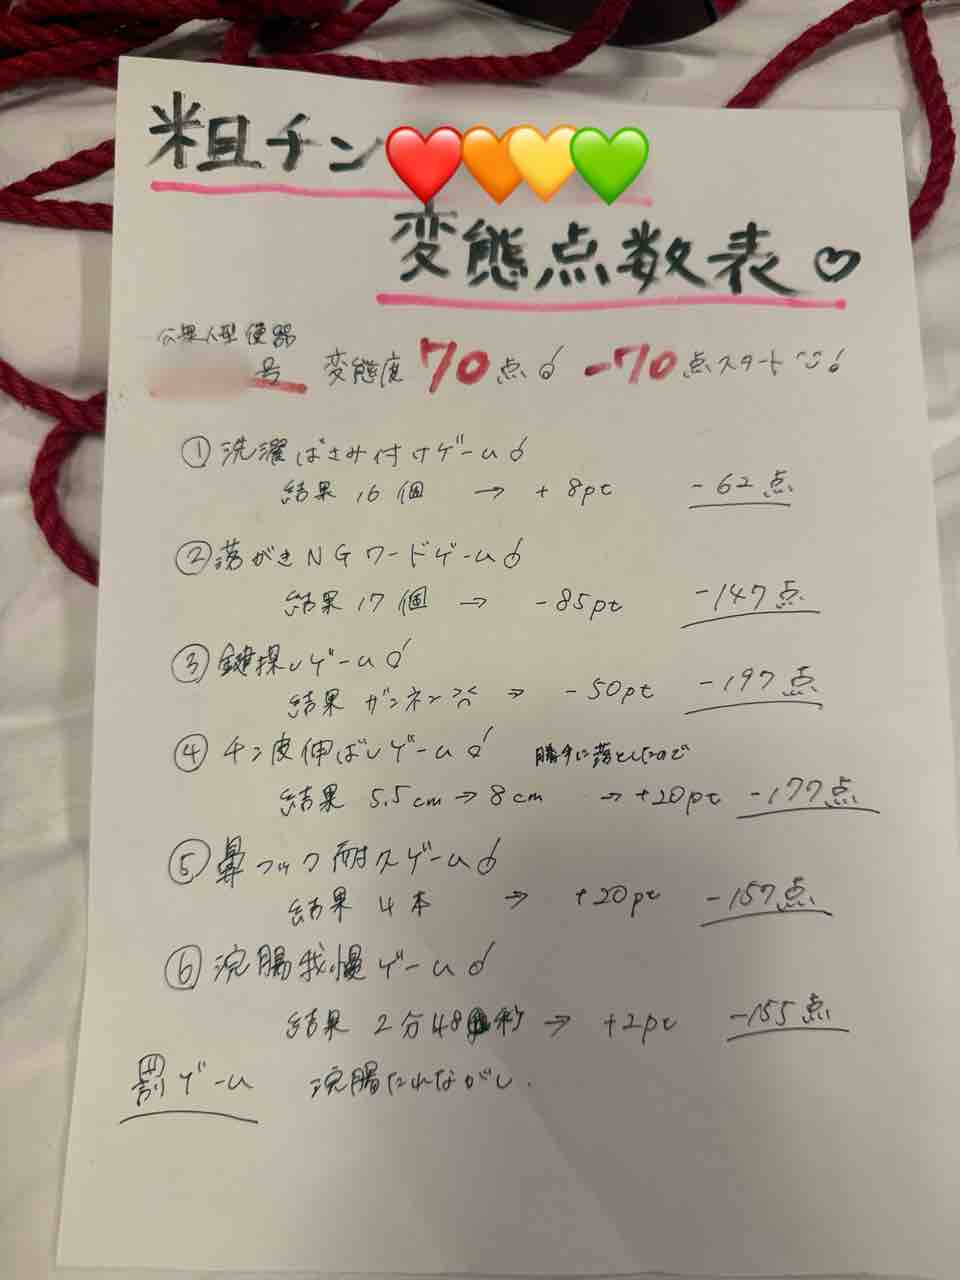 粗チン❤️🧡💛💚
変態点数表♡
公衆人型便器
号 変態度 70点♂ -70点スタート♂
① 洗濯ばさみ付けゲーム♂
結果 16個 → +8pt -62点
② 落がきNGワードゲーム♂
結果 17個 → -85pt -147点
③ 鍵探しゲーム♂
結果 ザンネン → -50pt -197点
④ チン皮伸ばしゲーム♂ 勝手に落としたので
結果 5.5cm→8cm →+20pt -177点
⑤ 鼻フック耐久ゲーム♂
結果 4本 → +20pt -157点
⑥ 浣腸我慢ゲーム♂
結果 2分48秒 → +2pt -155点
罰ゲーム 浣腸たれながし.